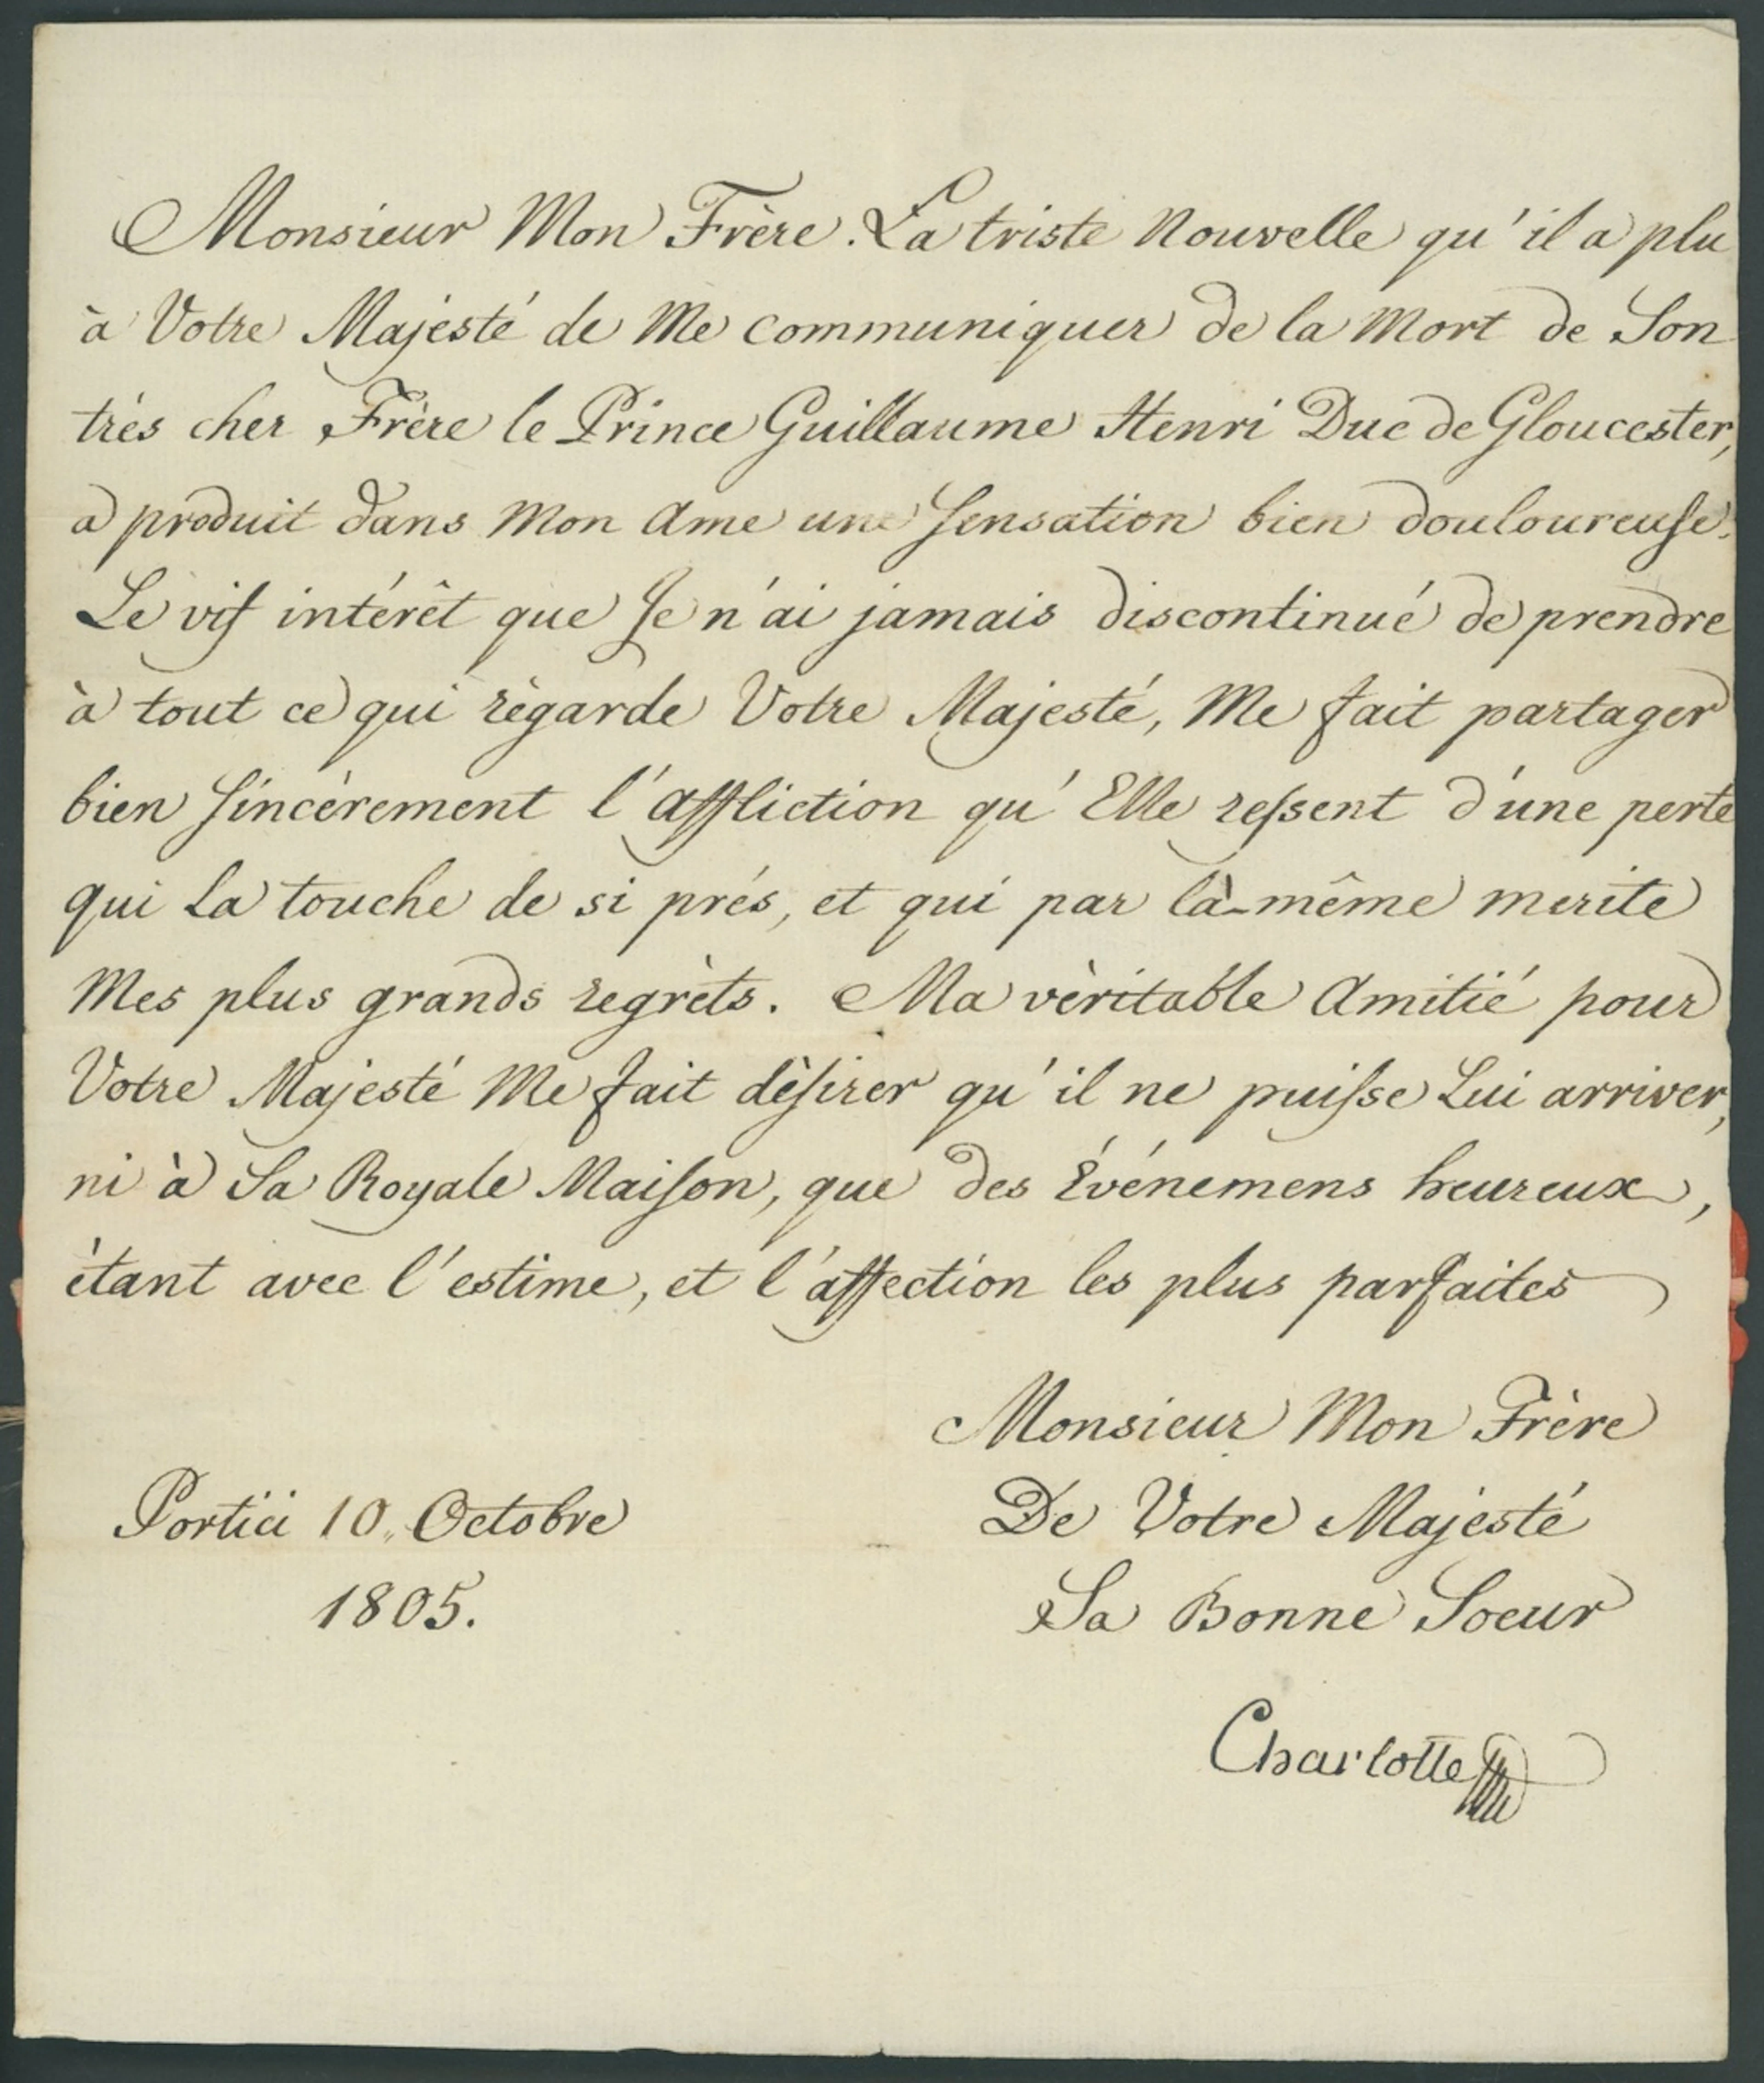 Monsieur Mon Frère. La triste Nouvelle qu'il a plu
à Votre Majesté de Me communiquer de la Mort de Son
trés cher Frère le Prince Guillaume Henri Duc de Gloucester,
a produit dans Mon Ame une ſensation bien douloureuſe.
Le vif intérêt que Je n'ai jamais discontinué de prendre
à tout ce qui règarde Votre Majesté, Me fait partager
bien ſincèrement l'affliction qu'Elle reſsent d'une perte
qui La touche de si prés, et qui par là-même merite
Mes plus grands regrèts. Ma vèritable Amitié pour
Votre Majesté Me fait dèſirer qu'il ne puiſse Lui arriver,
ni à Sa Royale Maiſon, que des Événemens heureux,
ètant avec l'estime, et l'affection les plus parfaites
Monsieur Mon Frère
De Votre Majesté
Portici 10,, Octobre
1805.
Sa Bonne Soeur
Charlotte